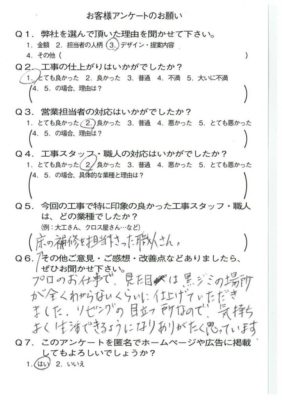 お客様アンケートのお願い
Q1．弊社を選んで頂いた理由を聞かせて下さい。
1．金額 2．担当者の人柄 3．デザイン・提案内容
4．その他（ ）
Q2．工事の仕上がりはいかがでしたか？
1．とても良かった 2．良かった 3．普通 4．不満 5．大いに不満
4．5．の場合、理由は？
Q3．営業担当者の対応はいかがでしたか？
1．とても良かった 2．良かった 3．普通 4．悪かった 5．とても悪かった
4．5．の場合、理由は？
Q4．工事スタッフ・職人の対応はいかがでしたか？
1．とても良かった 2．良かった 3．普通 4．悪かった 5．とても悪かった
4．5．の場合、具体的な業種と理由は？
Q5．今回の工事で特に印象の良かった工事スタッフ・職人
は、どの業種でしたか？
（例：大工さん、クロス屋さん…など）
床の補修を担当さった職人さん。
Q6．その他ご意見・ご感想・改善点などありましたら、
ぜひお聞かせ下さい。
プロのお仕事で、見た目は黒ジミの場所
が全くわからないくらいに仕上げていただき
ました。リビングの目立つ所なので、気持ち
よく生活できるようになりありがたく思っています
Q7．このアンケートを匿名でホームページや広告に掲載
してもよろしいでしょうか？
1．はい 2．いいえ